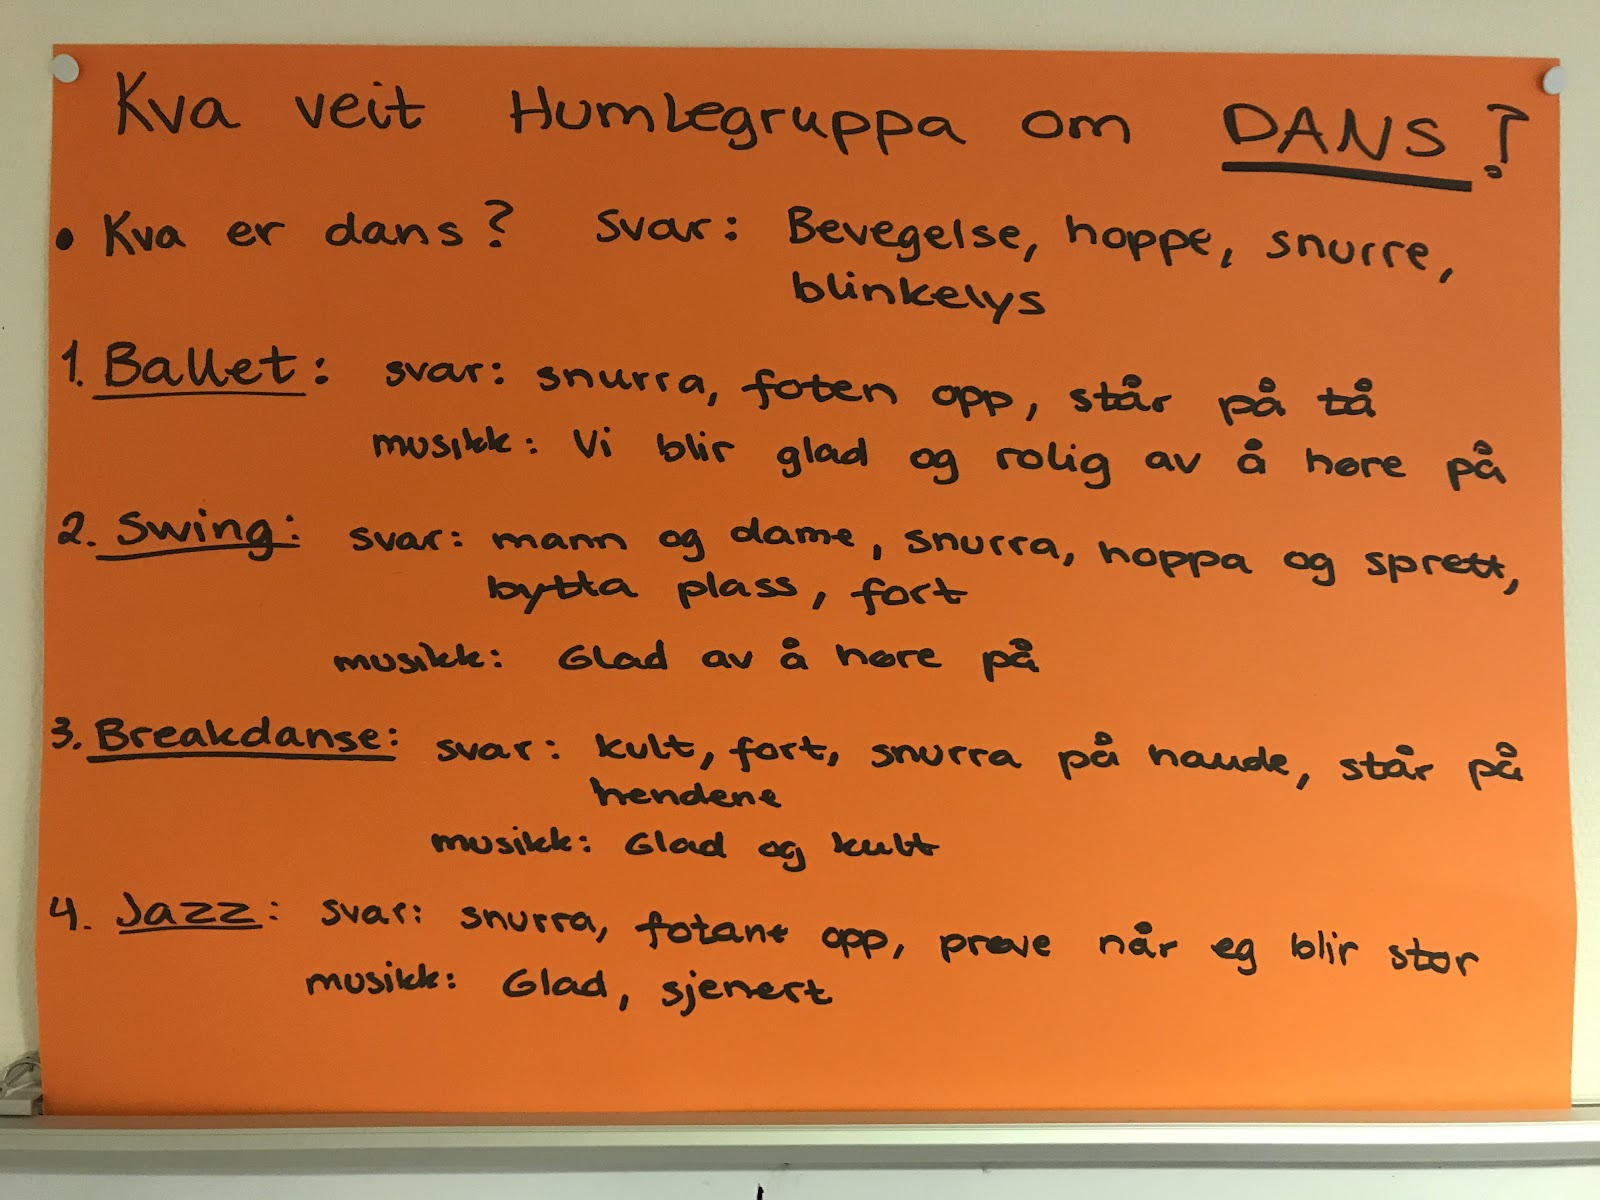 Kva veit Humlegruppa om DANS?
• Kva er dans? svar: Bevegelse, hoppe, snurre,
blinkelys
1. Ballet: svar: snurra, foten opp, står på tå
musikk: Vi blir glad og rolig av å høre på
2. Swing: svar: mann og dame, snurra, hoppa og sprett,
bytta plass, fort
musikk: Glad av å høre på
3. Breakdanse: svar: kult, fort, snurra på haude, står på
hendene
musikk: Glad og kult
4. Jazz: svar: snurra, føtane opp, prøve når eg blir stor
musikk: Glad, sjenert